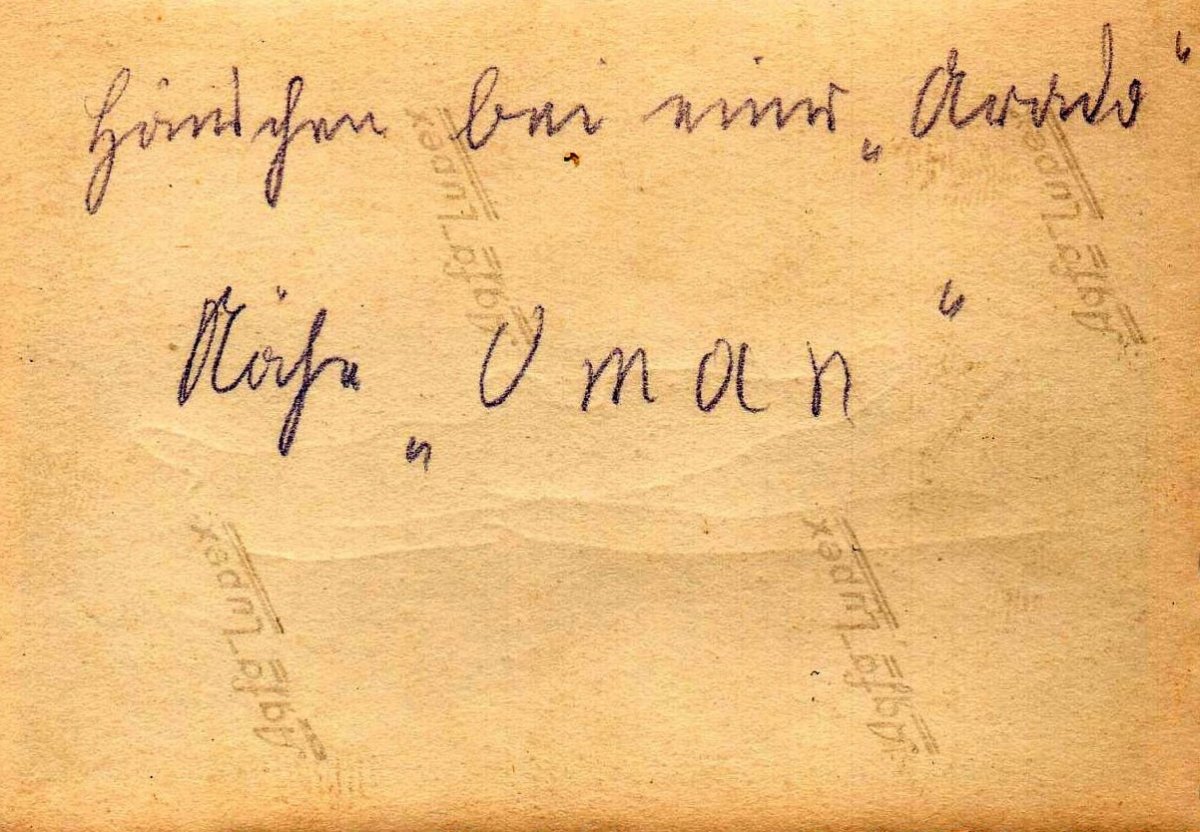 Hänschen bei einer „Arado“
Nähe „Uman“
Agfa-Lupex
Agfa-Lupex
Agfa-Lupex
Agfa-Lupex